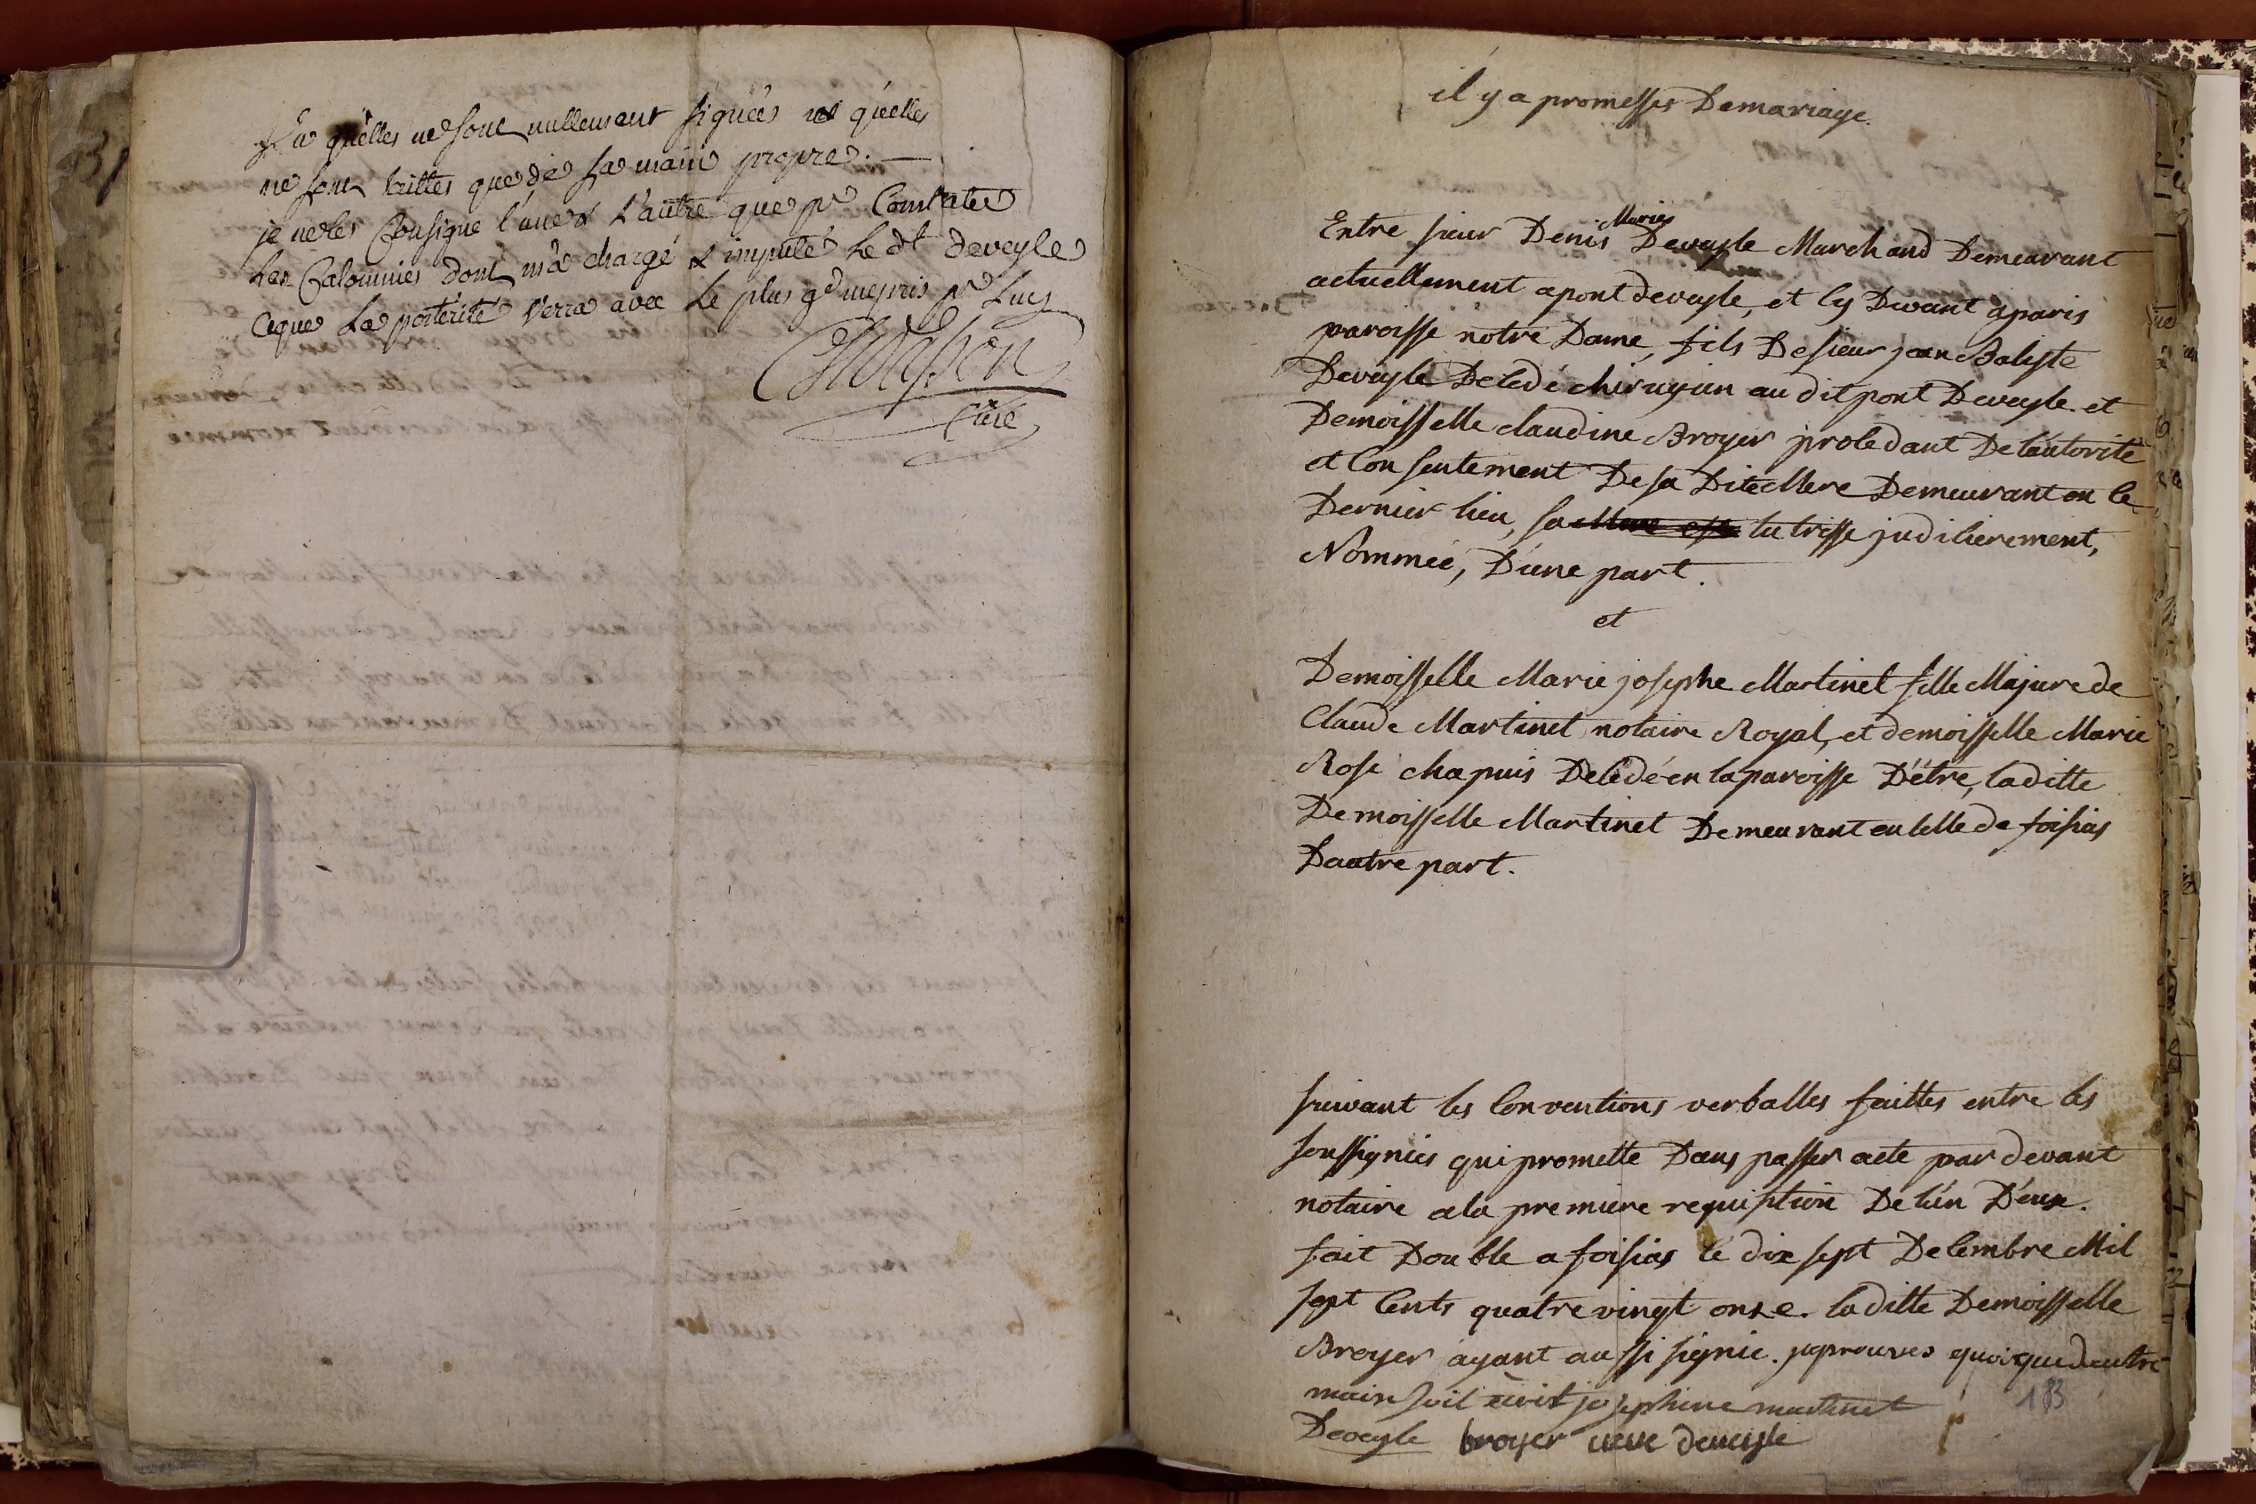 qu'elles ne sont nullement signées ni qu'elles
ne sont écrittes que de sa main propre.
je ne les Consigne l'une & L'autre que pr Constater
Les Calomnies dont m'a chargé & imputé Le dt deveyle
ceque La postérité verra avec Le plus gd mepris pr Luy
Curé
il y a promesses Demariage.
Entre sieur Denis Maries Deveyle Marchand Demeurant
actuellement apont deveyle, et cy Devant aparis
paroisse notre Dame, fils De sieur jean Batiste
Deveyle Decedé chirugiun au dit pont Deveyle et
Demoisselle claudine Broyer procedant De l'autorité
et Consentement De sa Dite Mere Demeurant en ce
Dernier lieu, sa tutrisse judicierement,
Nommée, D'une part.
et
Demoisselle Marie josephe Martinet fille Majure de
Claude Martinet notaire Royal, et demoisselle Marie
Rose chapuis Decedé en la paroisse D'étre, laditte
Demoisselle Martinet Demeurant en celle de foisias
Dautre part.
suivant les Conventions verballes faittes entre les
soussigniés qui promette Dans passer acte par devant
notaire ala premiere requisition De l'un D'eux.
fait Double a foisias le dix sept Decembre Mil
sept Cents quatre vingt onze. laditte Demoisselle
Broyer ayant aussi signie. japrouves quoique dautre
main soit écrit josephine martinet
Deveyle broyer veve deveyle
183